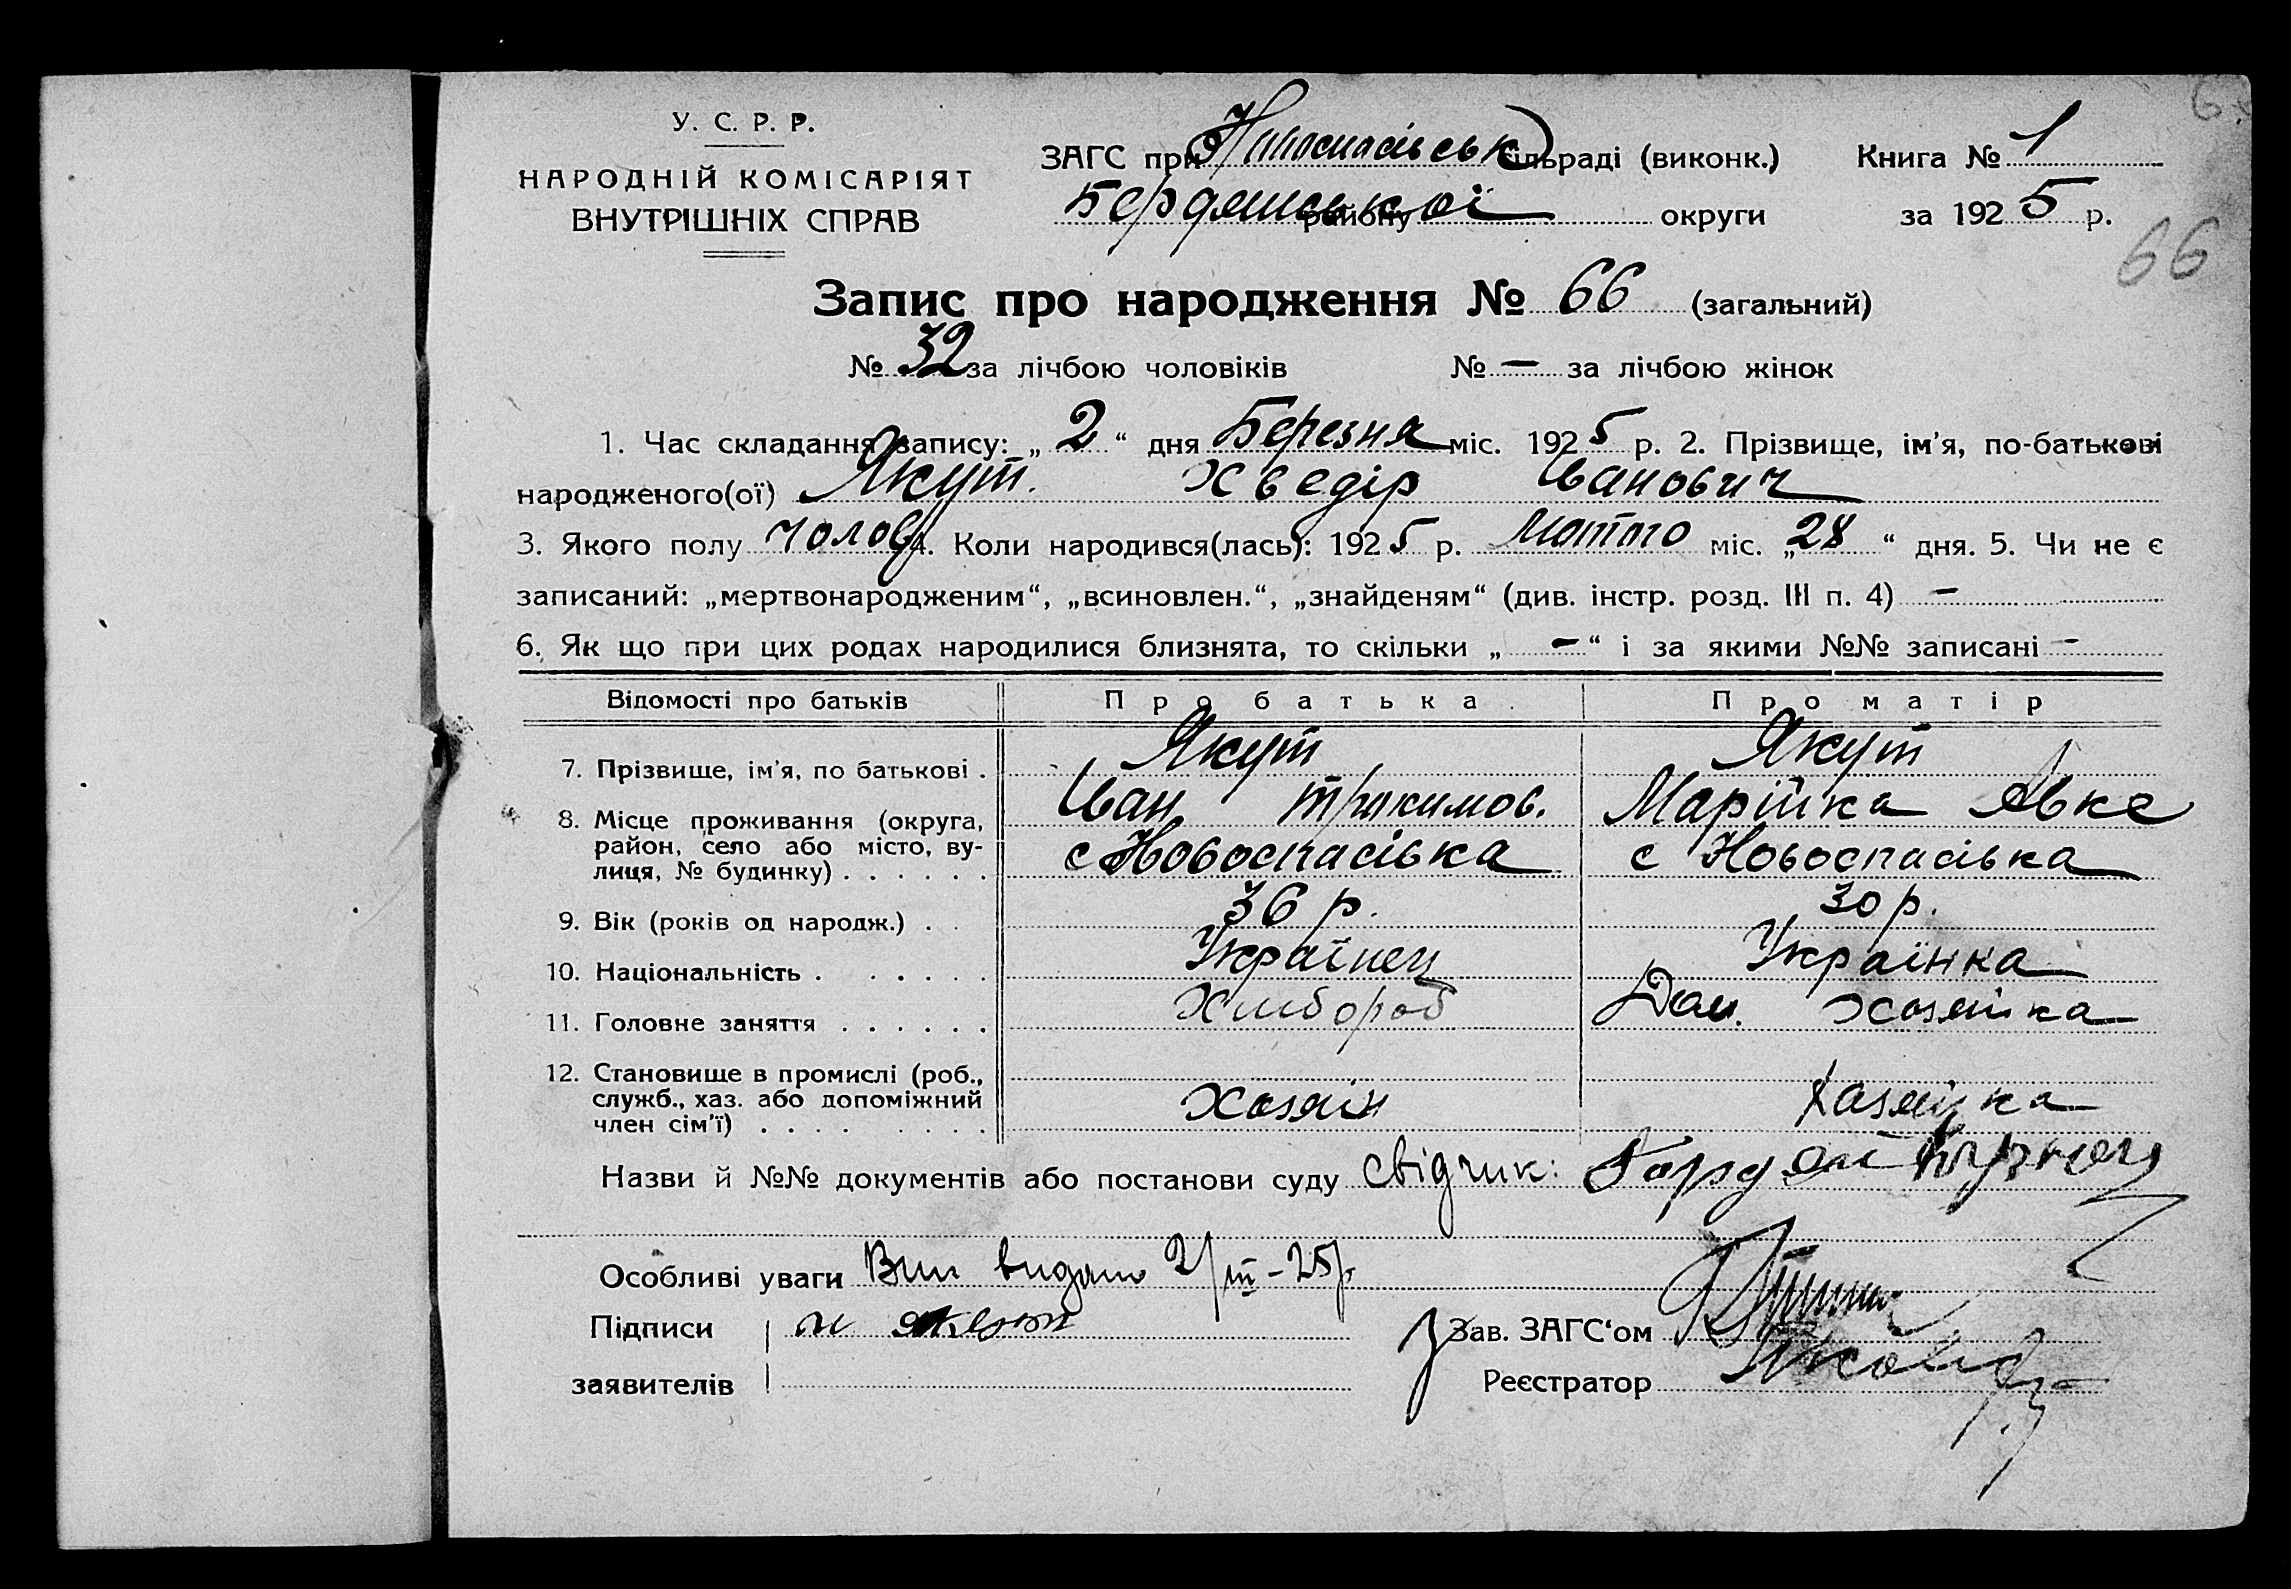 У. С. Р. Р.
НАРОДНІЙ КОМІСАРІЯТ
ВНУТРІШНІХ СПРАВ
ЗАГС при Новоспасівськ сільраді (виконк.) Книга № 1
Бердянської району округи за 1925 р.
66
Запис про народження № 66 (загальний)
№ 32 за лічбою чоловіків № — за лічбою жінок
1. Час складання запису: „2“ дня Березня міс. 1925 р. 2. Прізвище, ім'я, по-батькові
народженого(ої) Якут. Хведір Іванович
3. Якого полу чолов 4. Коли народився(лась): 1925 р. Лютого міс. „28“ дня. 5. Чи не є
записаний: „мертвонародженим“, „всиновлен.“, „знайденям“ (див. інстр. розд. III п. 4) —
6. Як що при цих родах народилися близнята, то скільки „—“ і за якими №№ записані —
Відомості про батьків Про батька Про матір
7. Прізвище, ім'я, по батькові . Якут Якут
Іван Трохимов. Марійка Авке
8. Місце проживання (округа,
район, село або місто, ву-
лиця, № будинку) . . . . . . с Новоспасівка с Новоспасівка
9. Вік (років од народж.) . . 36 р. 30 р.
10. Національність . . . . . . Українец Українка
11. Головне заняття . . . . . . Хлібороб Дом. хозяйка
12. Становище в промислі (роб.,
служб., хаз. або допоміжний
член сім'ї) . . . . . . . . Хозяін Хазяйка
Назви й №№ документів або постанови суду свідчик: Гордей
Особливі уваги Вип видано 2/III-25р.
Підписи и якут Зав. ЗАГС‘ом
заявителів Реєстратор